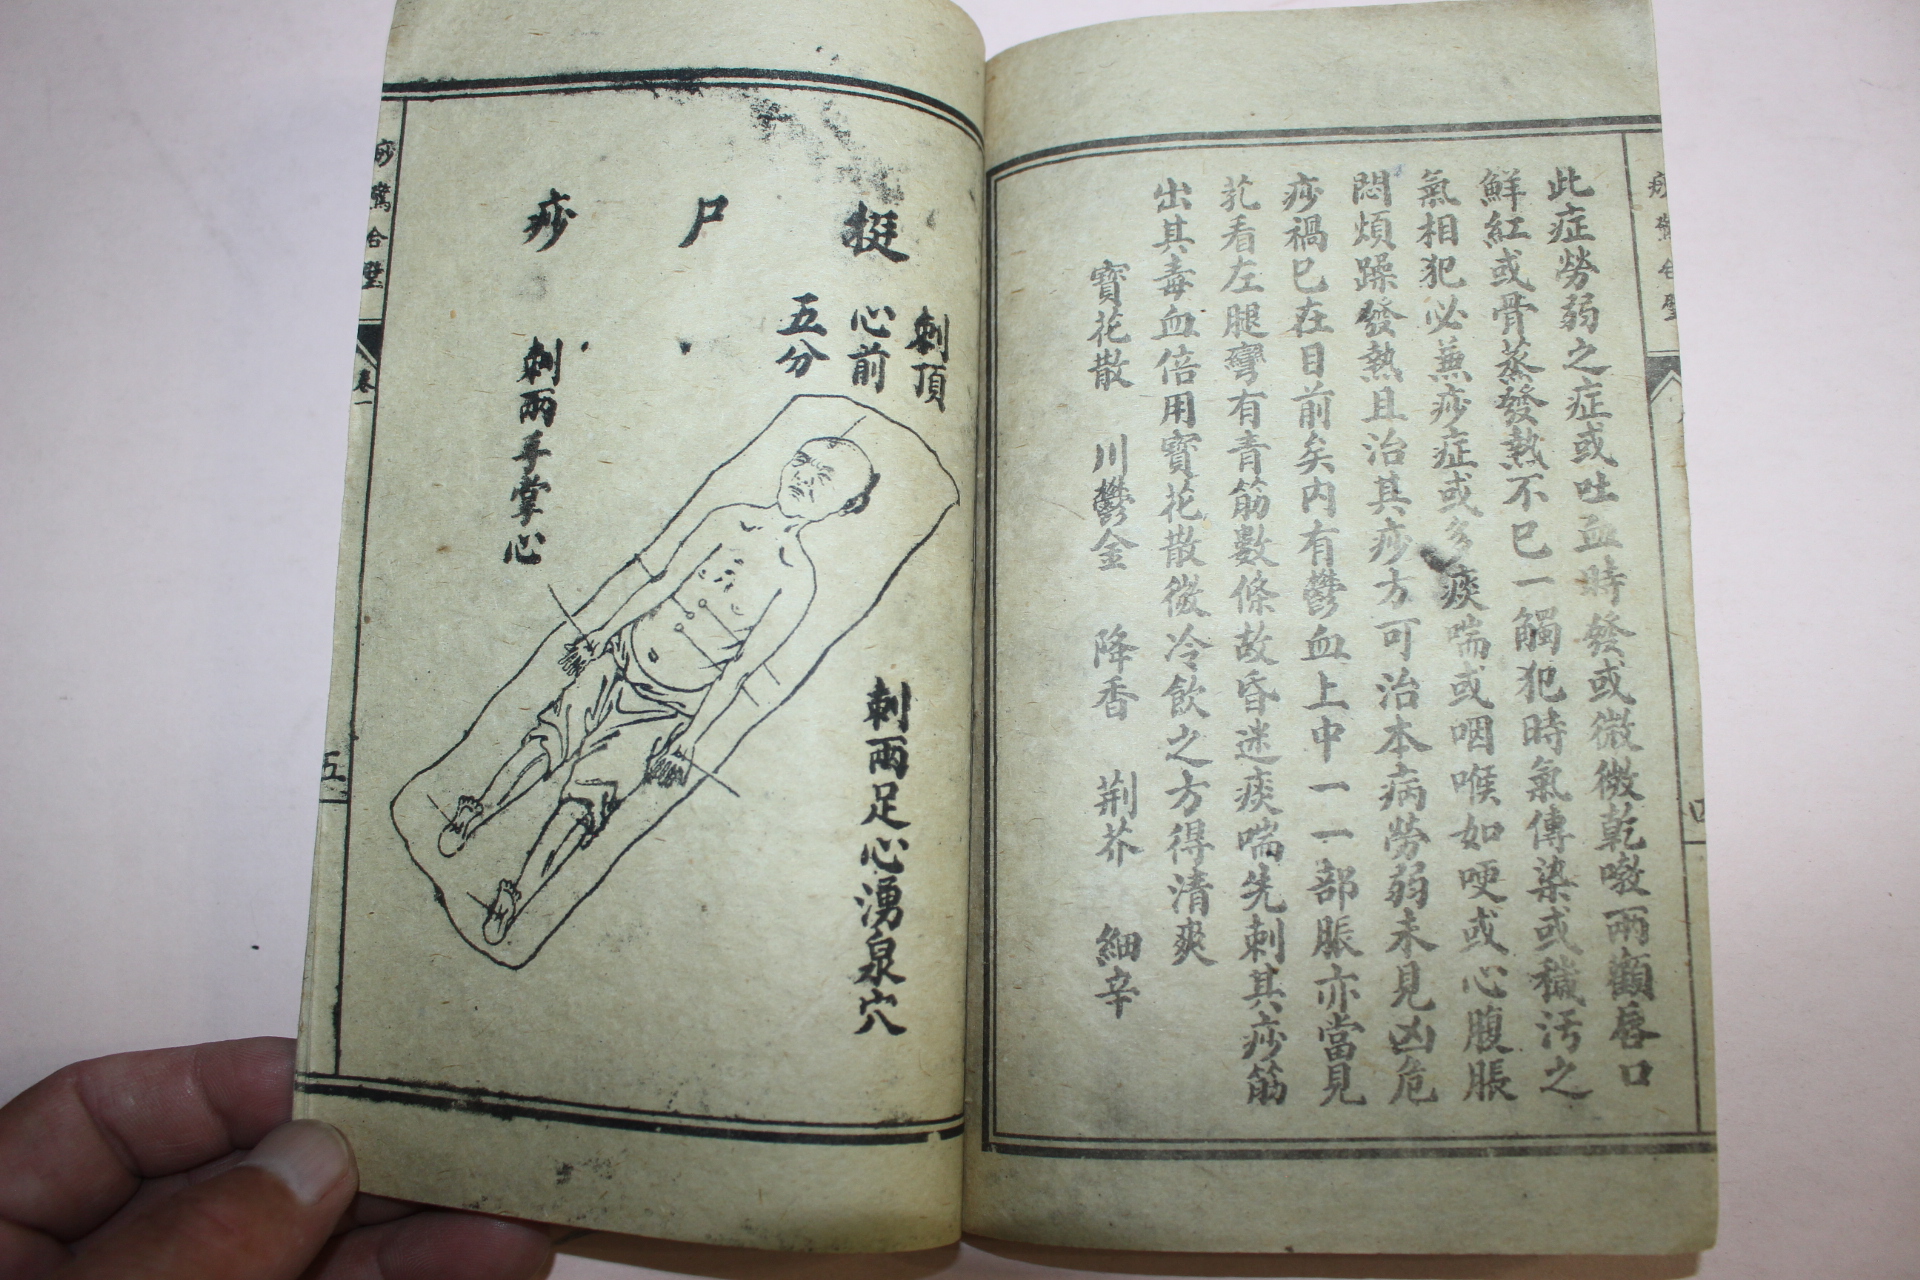 痧驚合璧
四
此症勞弱之症或吐血時發或微微乾嗽兩顴唇口
鮮紅或骨蒸發熱不已一觸犯時氣傳染或穢汚之
氣相犯必蕪痧症或多痰喘或咽喉如哽或心腹脹
悶煩躁發熱且治其痧方可治本病勞弱未見凶危
痧禍已在目前矣内有鬱血上中一一部脹亦當見
芤看左腿彎有青筋數條故昏迷痰喘先刺其痧筋
出其毒血倍用寳花散微冷飲之方得清爽
寳花散 川鬱金 降香 荆芥 細辛
挺尸痧
刺頂
心前
五分
刺兩手掌心
刺兩足心湧泉穴
痧驚合璧
卷一
五